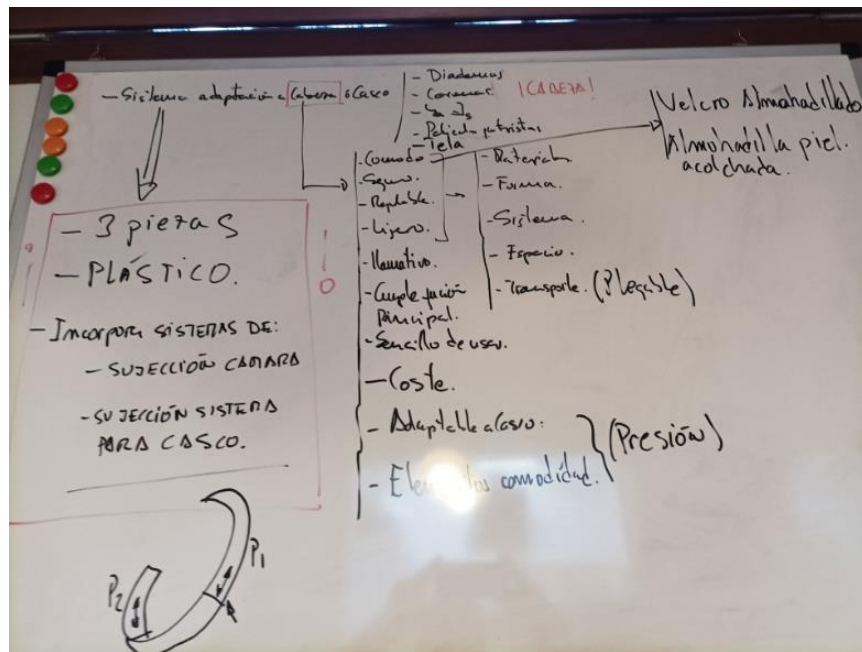 - Sistema adaptación a Cabeza o Casco
- Diademas
- Coronas.
¡CABEZA!
- Película
- Tela
Velcro Almohadillado
Almohadilla piel.
acolchada.
- 3 piezas
- PLÁSTICO.
- Incorpora SISTEMAS DE:
- SUJECCIÓN CAMARA
- SUJECCIÓN SISTEMA
PARA CASCO.
- Comodo
- Seguro.
- Ligero.
- llamativo.
- Cumple función
principal.
- Sencillo de usar.
- Coste.
- Adaptable a casco:
- Elementos comodidad.
(Presión)
- Material
- Forma.
- Sistema.
- Espacio.
- Transporte. (Plegable)
P1
P2